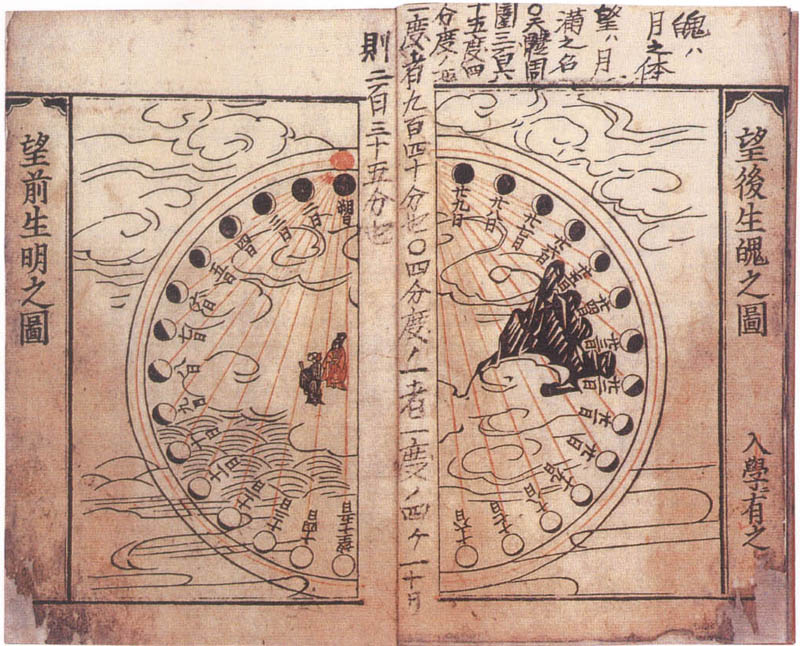 魄ハ
月之体
望ハ月
満之名
〇天體周
圍三百六
十五度四
分度ノ一
一度者九百四十分也〇四分度ノ一者一度ノ四ケ一十月
則二百三十五分也
望後生魄之圖
入學有之
廿九日
廿八日
廿七日
廿六日
廿五日
廿四日
廿三日
廿二日
廿一日
廿日
十九日
十八日
十七日
十六日
朔日
二日
三日
四日
五日
六日
七日
八日
九日
十日
十一日
十二日
十三日
十四日
望十五日
望前生明之圖